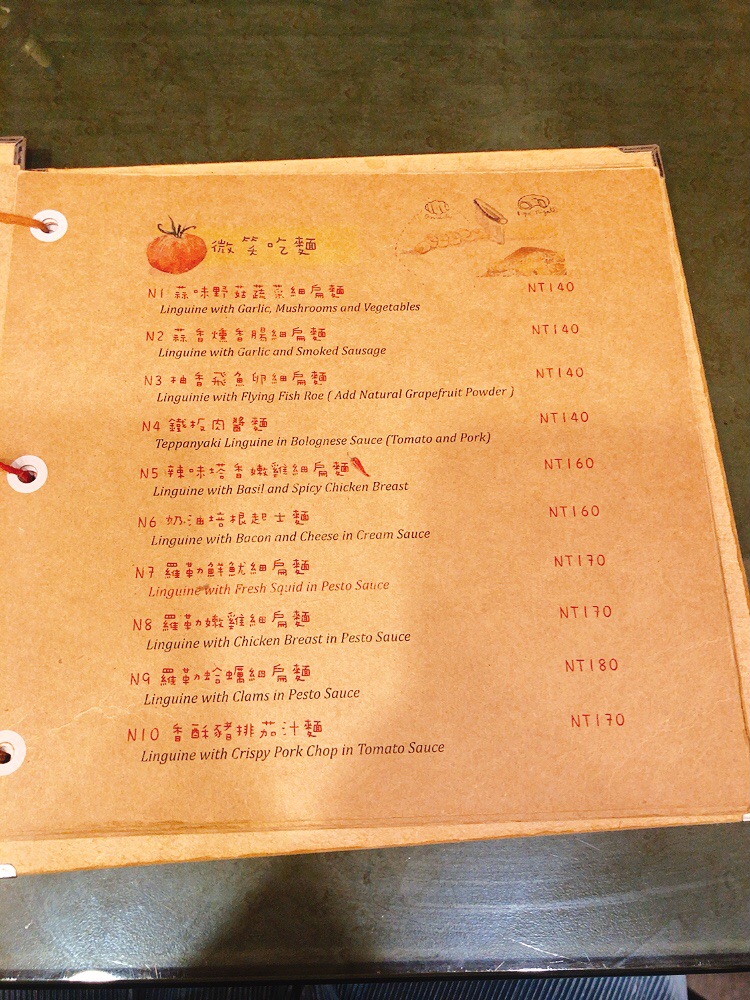 微笑吃麵
N1 蒜味野菇蔬菜細扁麵 NT140
Linguine with Garlic, Mushrooms and Vegetables
N2 蒜香燻香腸細扁麵 NT140
Linguine with Garlic and Smoked Sausage
N3 柚香飛魚卵細扁麵 NT140
Linguinie with Flying Fish Roe ( Add Natural Grapefruit Powder )
N4 鐵板肉醬麵 NT140
Teppanyaki Linguine in Bolognese Sauce (Tomato and Pork)
N5 辣味塔香嫩雞細扁麵 NT160
Linguine with Basil and Spicy Chicken Breast
N6 奶油培根起士麵 NT160
Linguine with Bacon and Cheese in Cream Sauce
N7 羅勒鮮魷細扁麵 NT170
Linguine with Fresh Squid in Pesto Sauce
N8 羅勒嫩雞細扁麵 NT170
Linguine with Chicken Breast in Pesto Sauce
N9 羅勒蛤蠣細扁麵 NT180
Linguine with Clams in Pesto Sauce
N10 香酥豬排茄汁麵 NT170
Linguine with Crispy Pork Chop in Tomato Sauce